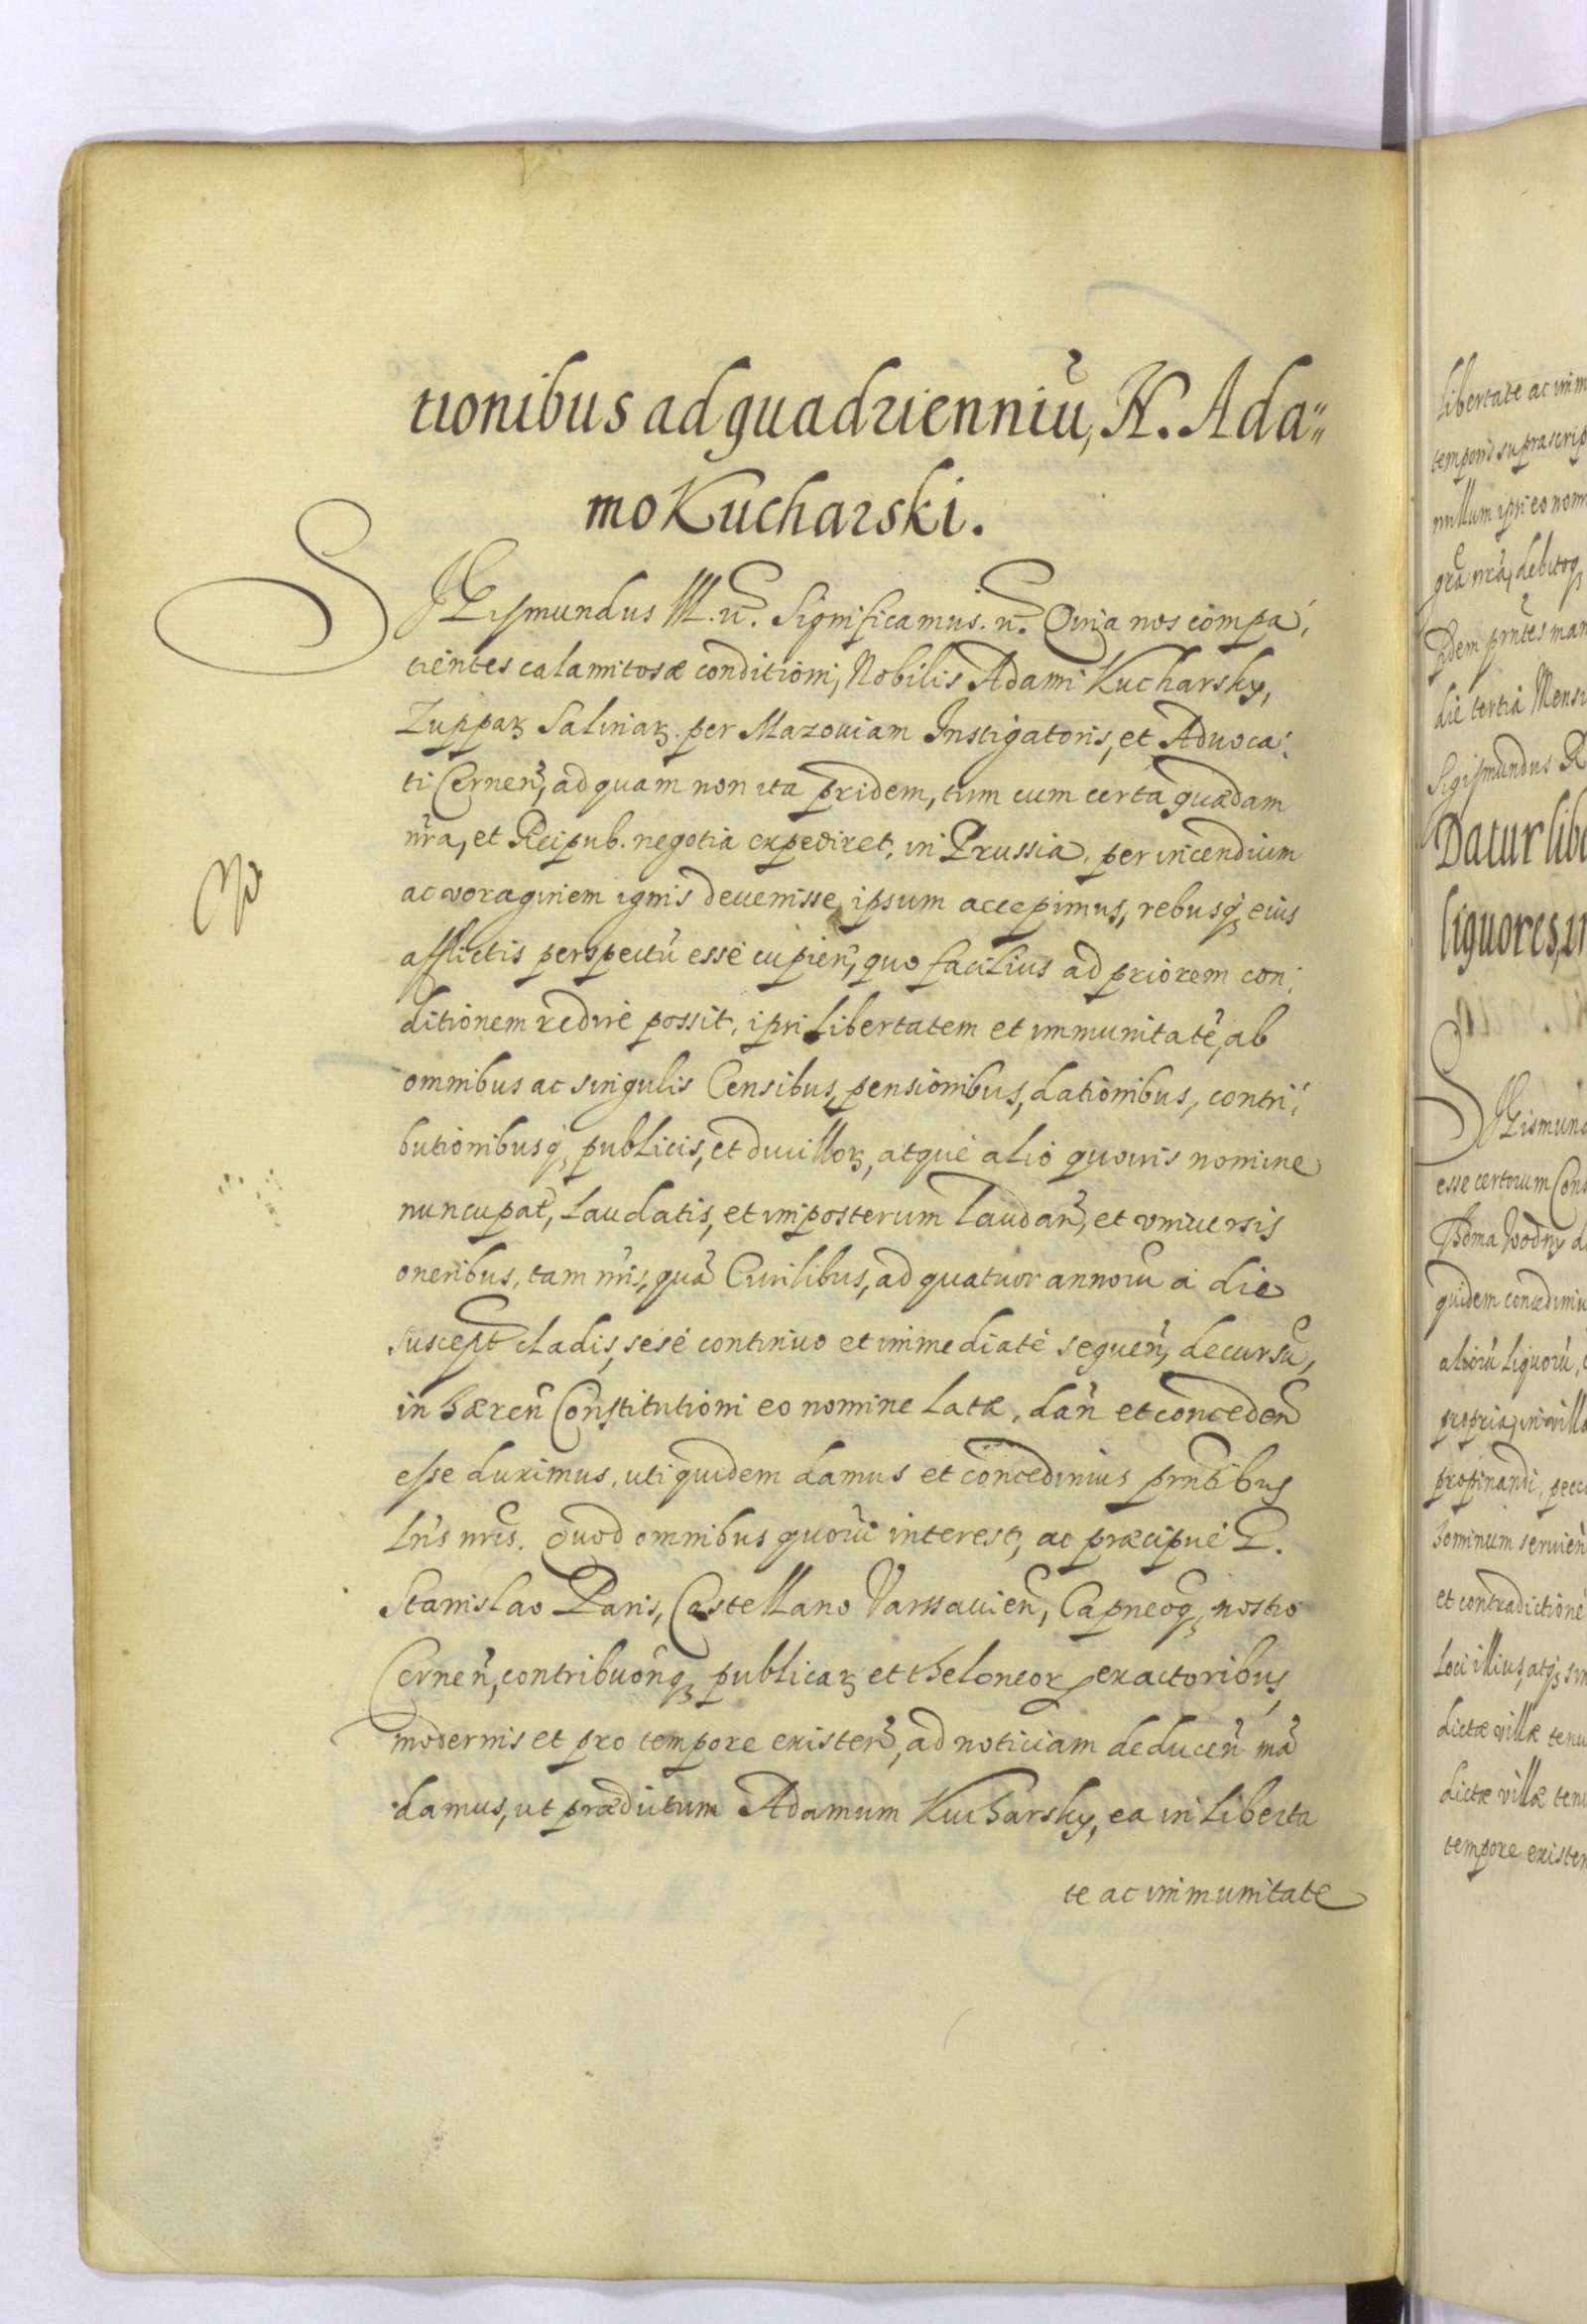 tionibus ad quadrienniũ, N. Ada„
mo Kucharski.
SIGismundus III. etc. Significamus. etc. Quia nos compa,
tientes calamitosæ conditioni, Nobilis Adami Kucharsky,
Zuppaꝝ Salinaꝝ. per Mazouiam Instigatoris, et Aduoca,
ti Cernen̄, ad quam non ita pridem, tum cum certa quædam
nr̃a, et Reipub. negotia expediret, in Prussia, per incendium
ac voraginem ignis deuenisse ipsum accepimus, rebusq̨ eius
afflictis perspectũ esse cupien̄, quo facilius ad priorem con,
ditionem redire possit, ipsi libertatem et immunitatẽ, ab
omnibus ac singulis Censibus, pensionibus, dationibus, contri,
butionibusq̨, publicis, et ducilloꝝ, atque alio quouis nomine
nuncupat̃, Laudatis, et imposterum Laudan̄, et vniuersis
oneribus, tam nr̃is, quã Ciuilibus, ad quatuor annorũ a die
suscept̃ cladis, sese continuo et immediate sequen̄, decursũ,
inhæren̄ Constitutioni eo nomine latæ, dan̄ et conceden̄
esse duximus, uti quidem damus et concedimus pñtibus
Lr̃is nr̃is. Quod omnibus quorũ interest, ac præcipue G.
Stanislao Paris, Castellano Varssauien̄, Capneoq̨ nostro
Cernen̄, contribuõnq̨ publicaꝝ et theloneoꝝ exactoribus,
modernis et pro tempore existen̄, ad noticiam deducen̄ mã
damus, ut prædictum Adamum Kucharsky, ea in liberta
te ac immunitate
libertate ac imm
temporis suprascrip
nullum ipsi eo nom
grã nrã, debitoq̨
die tertia Mensi
Sigismundus R
Datur libe
liquores, in
SIGismund
esse certorum Cons
Thoma Wodny d
quidem concedimu
aliorũ liquorũ,
propria, in villa
propinandi,
hominum seruien̄
et contradictione
loci illius, atq̨ sin
dictæ villæ tenu
dictæ villæ tenu
tempore existen